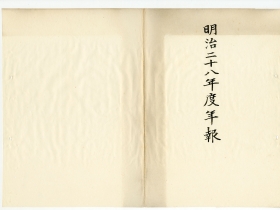 明治二十八年度年報